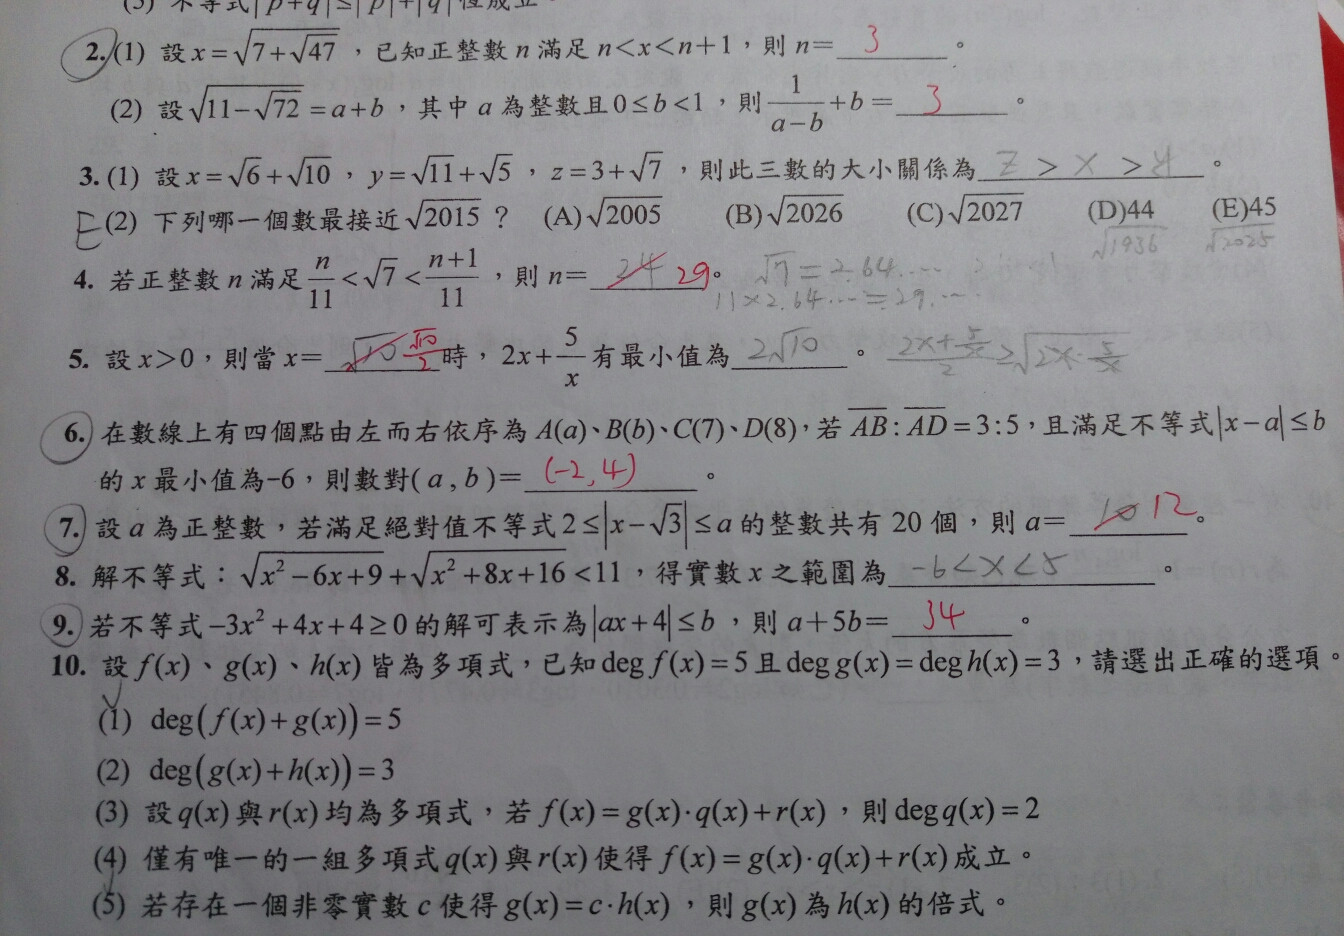 (5) 不等式|p+q|≤|p|+|q|恆成立。
2.(1) 設x=√(7+√47)，已知正整數n滿足n<x<n+1，則n= 3 。
(2) 設√(11-√72)=a+b，其中a為整數且0≤b<1，則1/(a-b)+b= 3 。
3.(1) 設x=√6+√10，y=√11+√5，z=3+√7，則此三數的大小關係為 z > x > y 。
E (2) 下列哪一個數最接近√2015？ (A)√2005 (B)√2026 (C)√2027 (D)44 (E)45
√1936 √2025
4. 若正整數n滿足n/11<√7<(n+1)/11，則n= 24 29。 √7=2.64……
11×2.64…=29.…
5. 設x>0，則當x= √10 √10/2 時，2x+5/x有最小值為 2√10 。 (2x+5/x)/2≥√(2x·5/x)
6. 在數線上有四個點由左而右依序為A(a)、B(b)、C(7)、D(8)，若AB:AD=3:5，且滿足不等式|x-a|≤b
的x最小值為-6，則數對(a,b)= (-2,4) 。
7. 設a為正整數，若滿足絕對值不等式2≤|x-√3|≤a的整數共有20個，則a= 10 12。
8. 解不等式：√(x²-6x+9)+√(x²+8x+16)<11，得實數x之範圍為 -6<x<5 。
9. 若不等式-3x²+4x+4≥0的解可表示為|ax+4|≤b，則a+5b= 34 。
10. 設f(x)、g(x)、h(x)皆為多項式，已知deg f(x)=5且deg g(x)=deg h(x)=3，請選出正確的選項。
(1) deg(f(x)+g(x))=5
(2) deg(g(x)+h(x))=3
(3) 設q(x)與r(x)均為多項式，若f(x)=g(x)·q(x)+r(x)，則deg q(x)=2
(4) 僅有唯一的一組多項式q(x)與r(x)使得f(x)=g(x)·q(x)+r(x)成立。
(5) 若存在一個非零實數c使得g(x)=c·h(x)，則g(x)為h(x)的倍式。